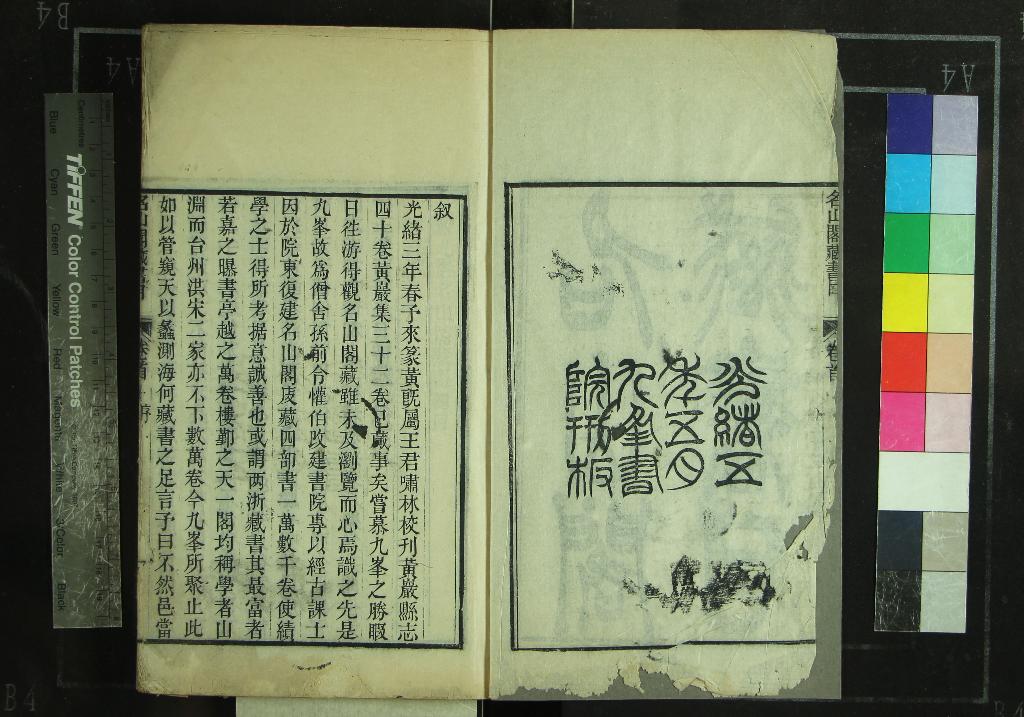 光緒五
年五月
九峯書
院栞板
名山閣藏書目
卷首
叙
光緒三年春予來篆黃旣屬王君嘯林校刊黃巖縣志
四十卷黃巖集三十二卷已蕆事矣嘗慕九峯之勝暇
日往游得觀名山閣藏雖未及瀏覽而心焉識之先是
九峯故爲僧舍孫前令懽伯改建書院專以經古課士
因於院東復建名山閣庋藏四部書一萬數千卷使績
學之士得所考据意誠善也或謂两浙藏書其最富者
若嘉之曝書亭越之萬卷樓鄞之天一閣均稱學者山
淵而台州洪宋二家亦不下數萬卷今九峯所聚止此
如以管窺天以蠡測海何藏書之足言予曰不然邑當
名山閣藏書目
卷首 序
TIFFEN Color Control Patches
Centimetres
Blue
Cyan
Green
Yellow
Red
Magenta
White
3/Color
Black
A4
A4
B4
B4